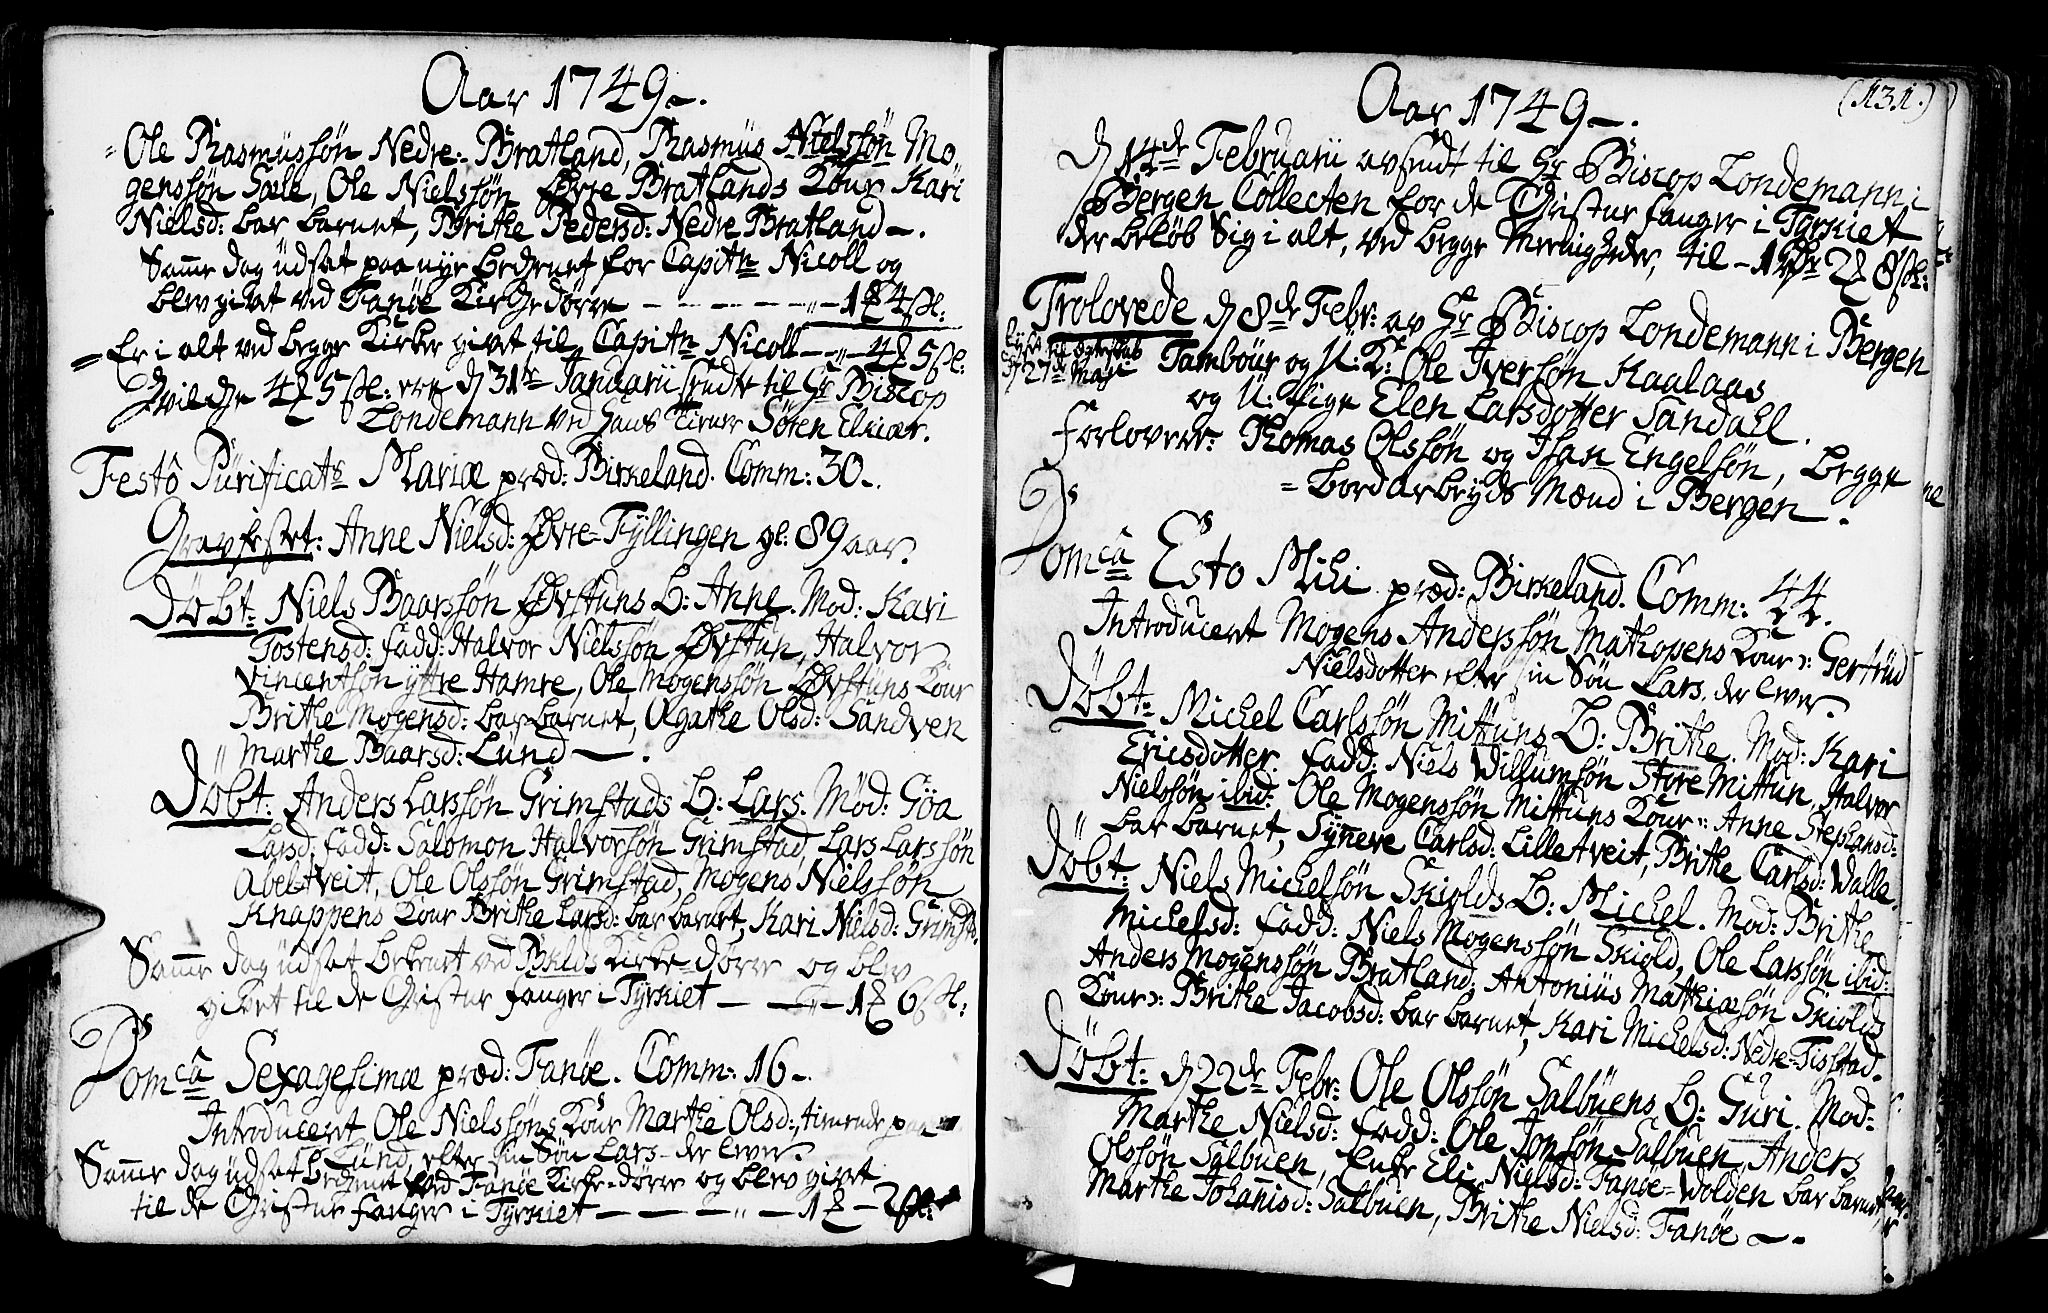 Aar 1749.
Ole Rasmussøn Nedre-Bratland, Rasmus Nielssøn Mo„
genssøn Sæle, Ole Nielssøn Øvre Bratlands Kone Kari
Nielsd: bar barnet, Brithe Pedersd: Nedre Bratland.
Same dag udsat paa nye beckenet for Capitn Nicoll og
blev givet ved Fanøe Kirche dørre — 1 4 sk:
Er i alt ved begge Kirker givet til Capitn Nicoll — 4 5 sk:
Hvilche 4 5 sk: ere d 31te Januarii sendte til Hr Biscop
Londemann ved hans Tiener Søren Elkiær.
Festô Purificats Mariæ præd: Birkeland. Comm: 30.
Gravfestet: Anne Nielsd: Øvre-Fyllingen gl: 89 aar.
Døbt: Niels Baarssøn Øvstuns B: Anne. Mod: Kari
Tostensd: fadd: Halvor Nielssøn Øvstun, Halvor
Vincentsøn yttre Hamre, Ole Mogenssøn Øvstuns Kone
Brithe Mogensd: bar barnet, Agathe Olsd: Sandven
Marthe Baarsd: Lund.
Døbt: Anders Larssøn Grimstads B: Lars. Mod: Göa
Larsd: fadd: Salomon Halvorsøn Grimstad, Lars Larssøn
Abeltveit, Ole Olssøn Grimstad, Mogens Nielssøn
Knappens Kone Brithe Larsd: bar barnet, Kari Nielsd: Grimst:
Same dag udsat bekenet ved Bklds Kirke-dørre og blev
givet til de Christne fanger i Tyrkiet — 1 6 sk:
Domcâ Sexagesimæ præd: Fanøe. Comm: 16.
Introduceret Ole Nielssøns Kone Marthe Olsd:, tienende paa
Lund, efter sin Søn Lars der lever.
Same dag udsat beckenet ved Fanøe Kirke-dørre og blev givet
til de Christne fanger i Tyrkiet — 1 — 2 sk:
(131.)
Aar 1749.
d 14de Februarii avsendt til Hr Biscop Londemann i
Bergen Collecten for de Christne fanger i Tyrkiet
der beløb sig i alt, ved begge Meenigheder, til — 1 2 8 sk:
Trolovede d 8de Febr: av Hr Biscop Londemann i Bergen
Tambour og U: K: Ole Iversøn Kaalaas
d 27de Maji
og U: Pige Elen Larsdotter Sandahl.
Forlovere: Thomas Olssøn og Isak Engelsøn, begge
bordarbeyds Mænd i Bergen.
Domcâ Esto Mihi præd: Birkeland. Comm: 44.
Introduceret Mogens Anderssøn Mathopens Kone: Gertrud
Nielsdotter efter sin Søn Lars, der lever.
Døbt: Michel Carlssøn Mittuns B: Brithe. Mod: Kari
Ericsdotter. fadd: Niels Villumsøn Store Mittun, Halvor
Nielssøn ibid: Ole Mogenssøn Mittuns Kone: Anne Stephansd:
bar barnet, Synneve Carlsd: Lilletveit, Brithe Carlsd: Valle.
Døbt: Niels Michelsøn Skiolds B: Michel. Mod: Brithe
Michelsd: fadd: Niels Mogenssøn Skiold, Ole Larssøn ibid:
Anders Mogenssøn Bratland, Antonius Mathiæsøn Skiolds
Kone: Brithe Jacobsd: bar barnet, Kari Michelsd: Nedre-Tistad.
Døbt: d 22de Febr: Ole Olssøn Salbuens B: Guri. Mod:
Marthe Nielsd: fadd: Ole Jonsøn Salbuen, Anders
Olssøn Salbuen, Enke Eli Nielsd: Fanøe-Volden bar barnet,
Marthe Johanisd: Salbuen, Brithe Nielsd: Fanøe.